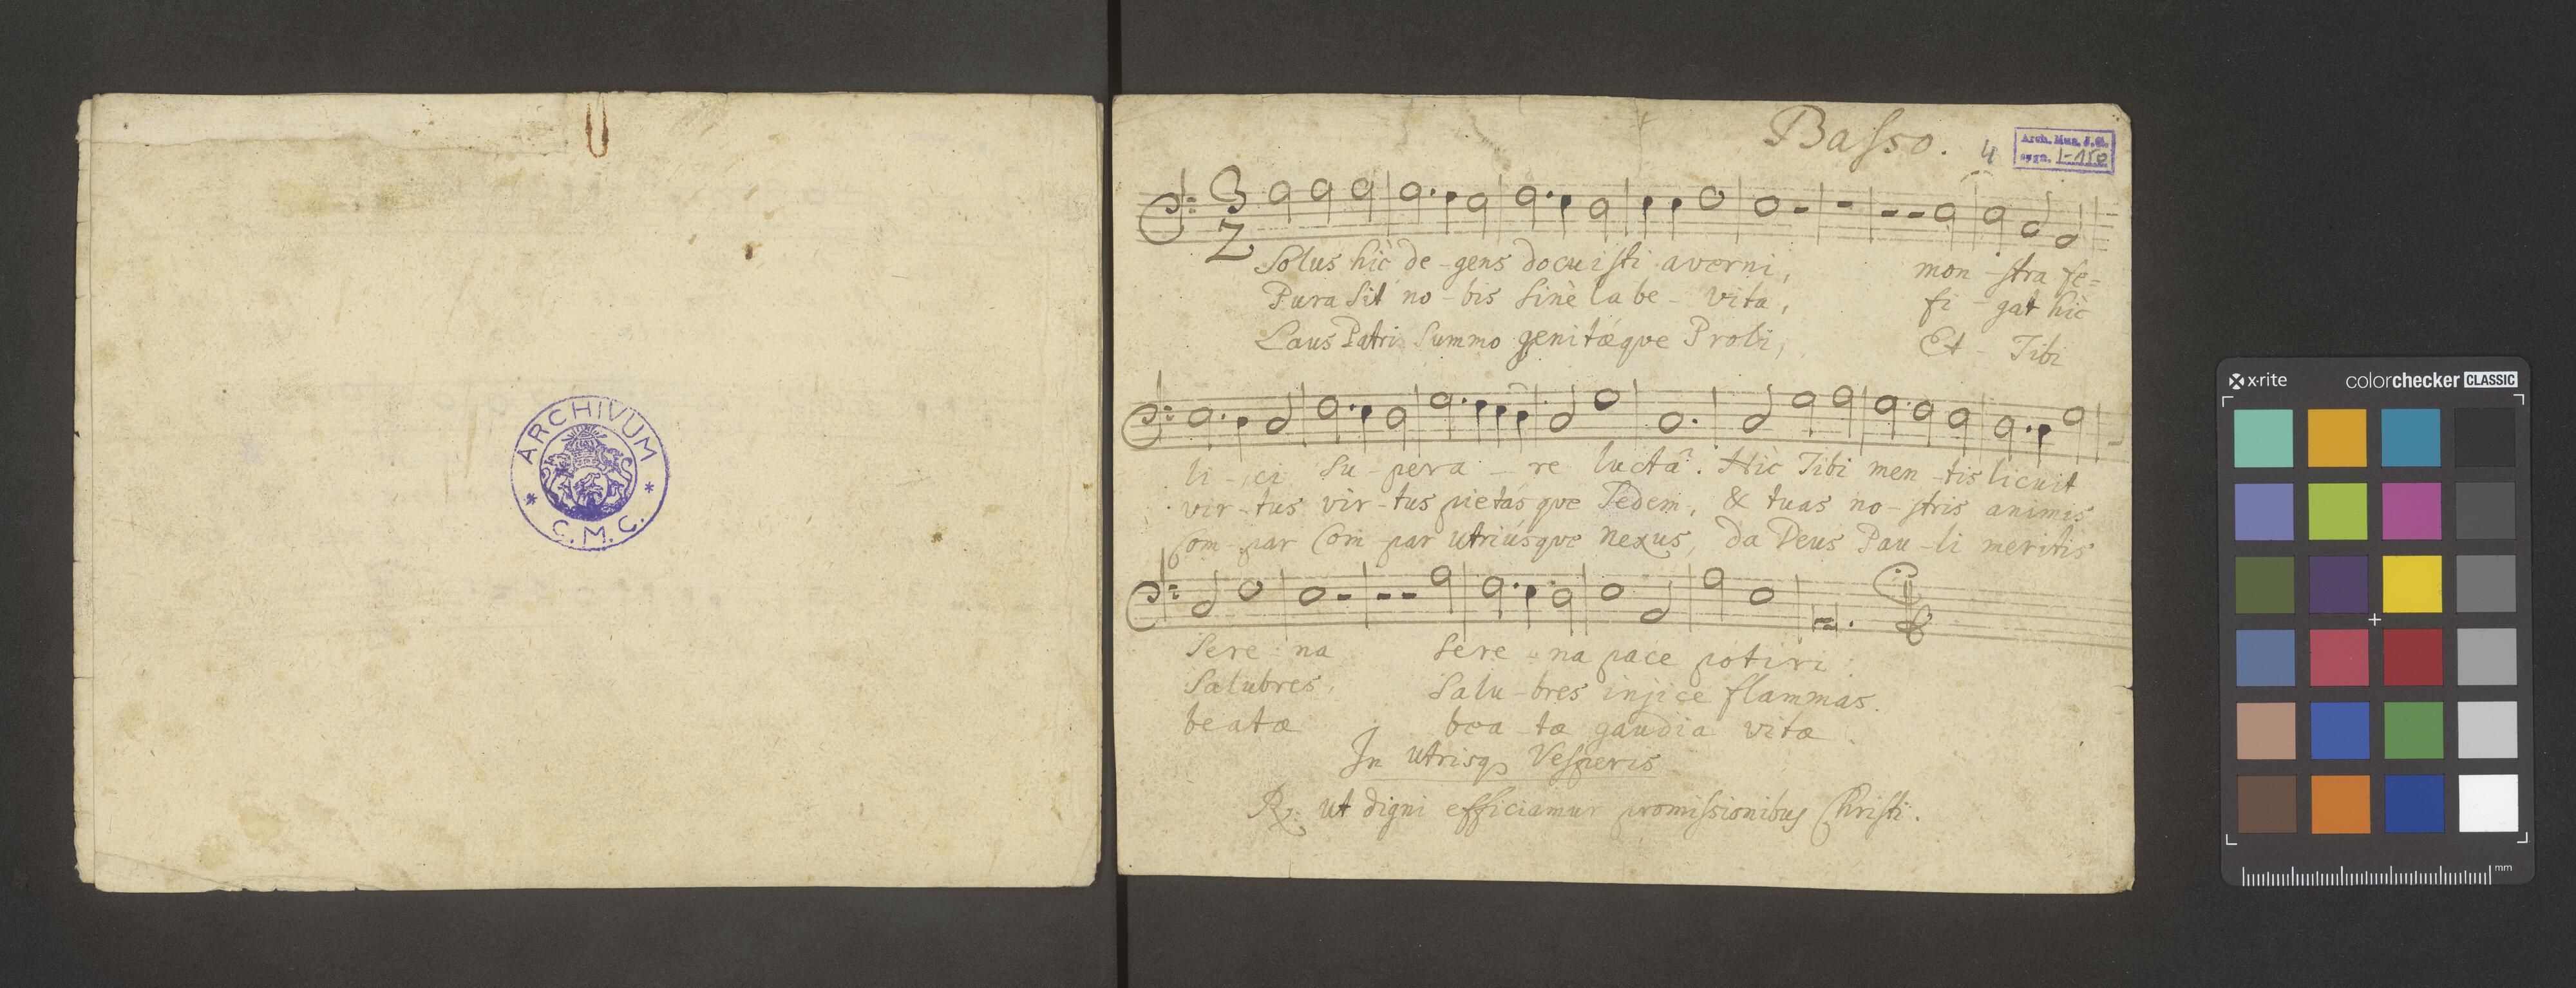 ARCHIVUM
* C. M. C. *
Basso. 4
Arch. Mus. J. G.
sygn. I-150
3
2
Solus hic de-gens docuisti averni, mon-stra fe=
Pura Sit no-bis Sinè labe-vita, fi-gat hic
Laus Patri Summo genitæqve Proli, Et-Tibi
li-ci su-pera-re luctâ. Hic Tibi men-tis licuit
vir-tus vir-tus pietasqve Sedem, & tuas no-stris animis
Com-par Com-par utriúsqve nexus, da Deus Pau-li meritis
Sere-na Sere-na pace potiri
Salubres, Salu-bres injice flammas.
beatæ bea-tæ gaudia vitæ
In utrisq; Vesperis
R: ut digni efficiamur promissionibus Christi.
x·rite colorchecker CLASSIC
mm